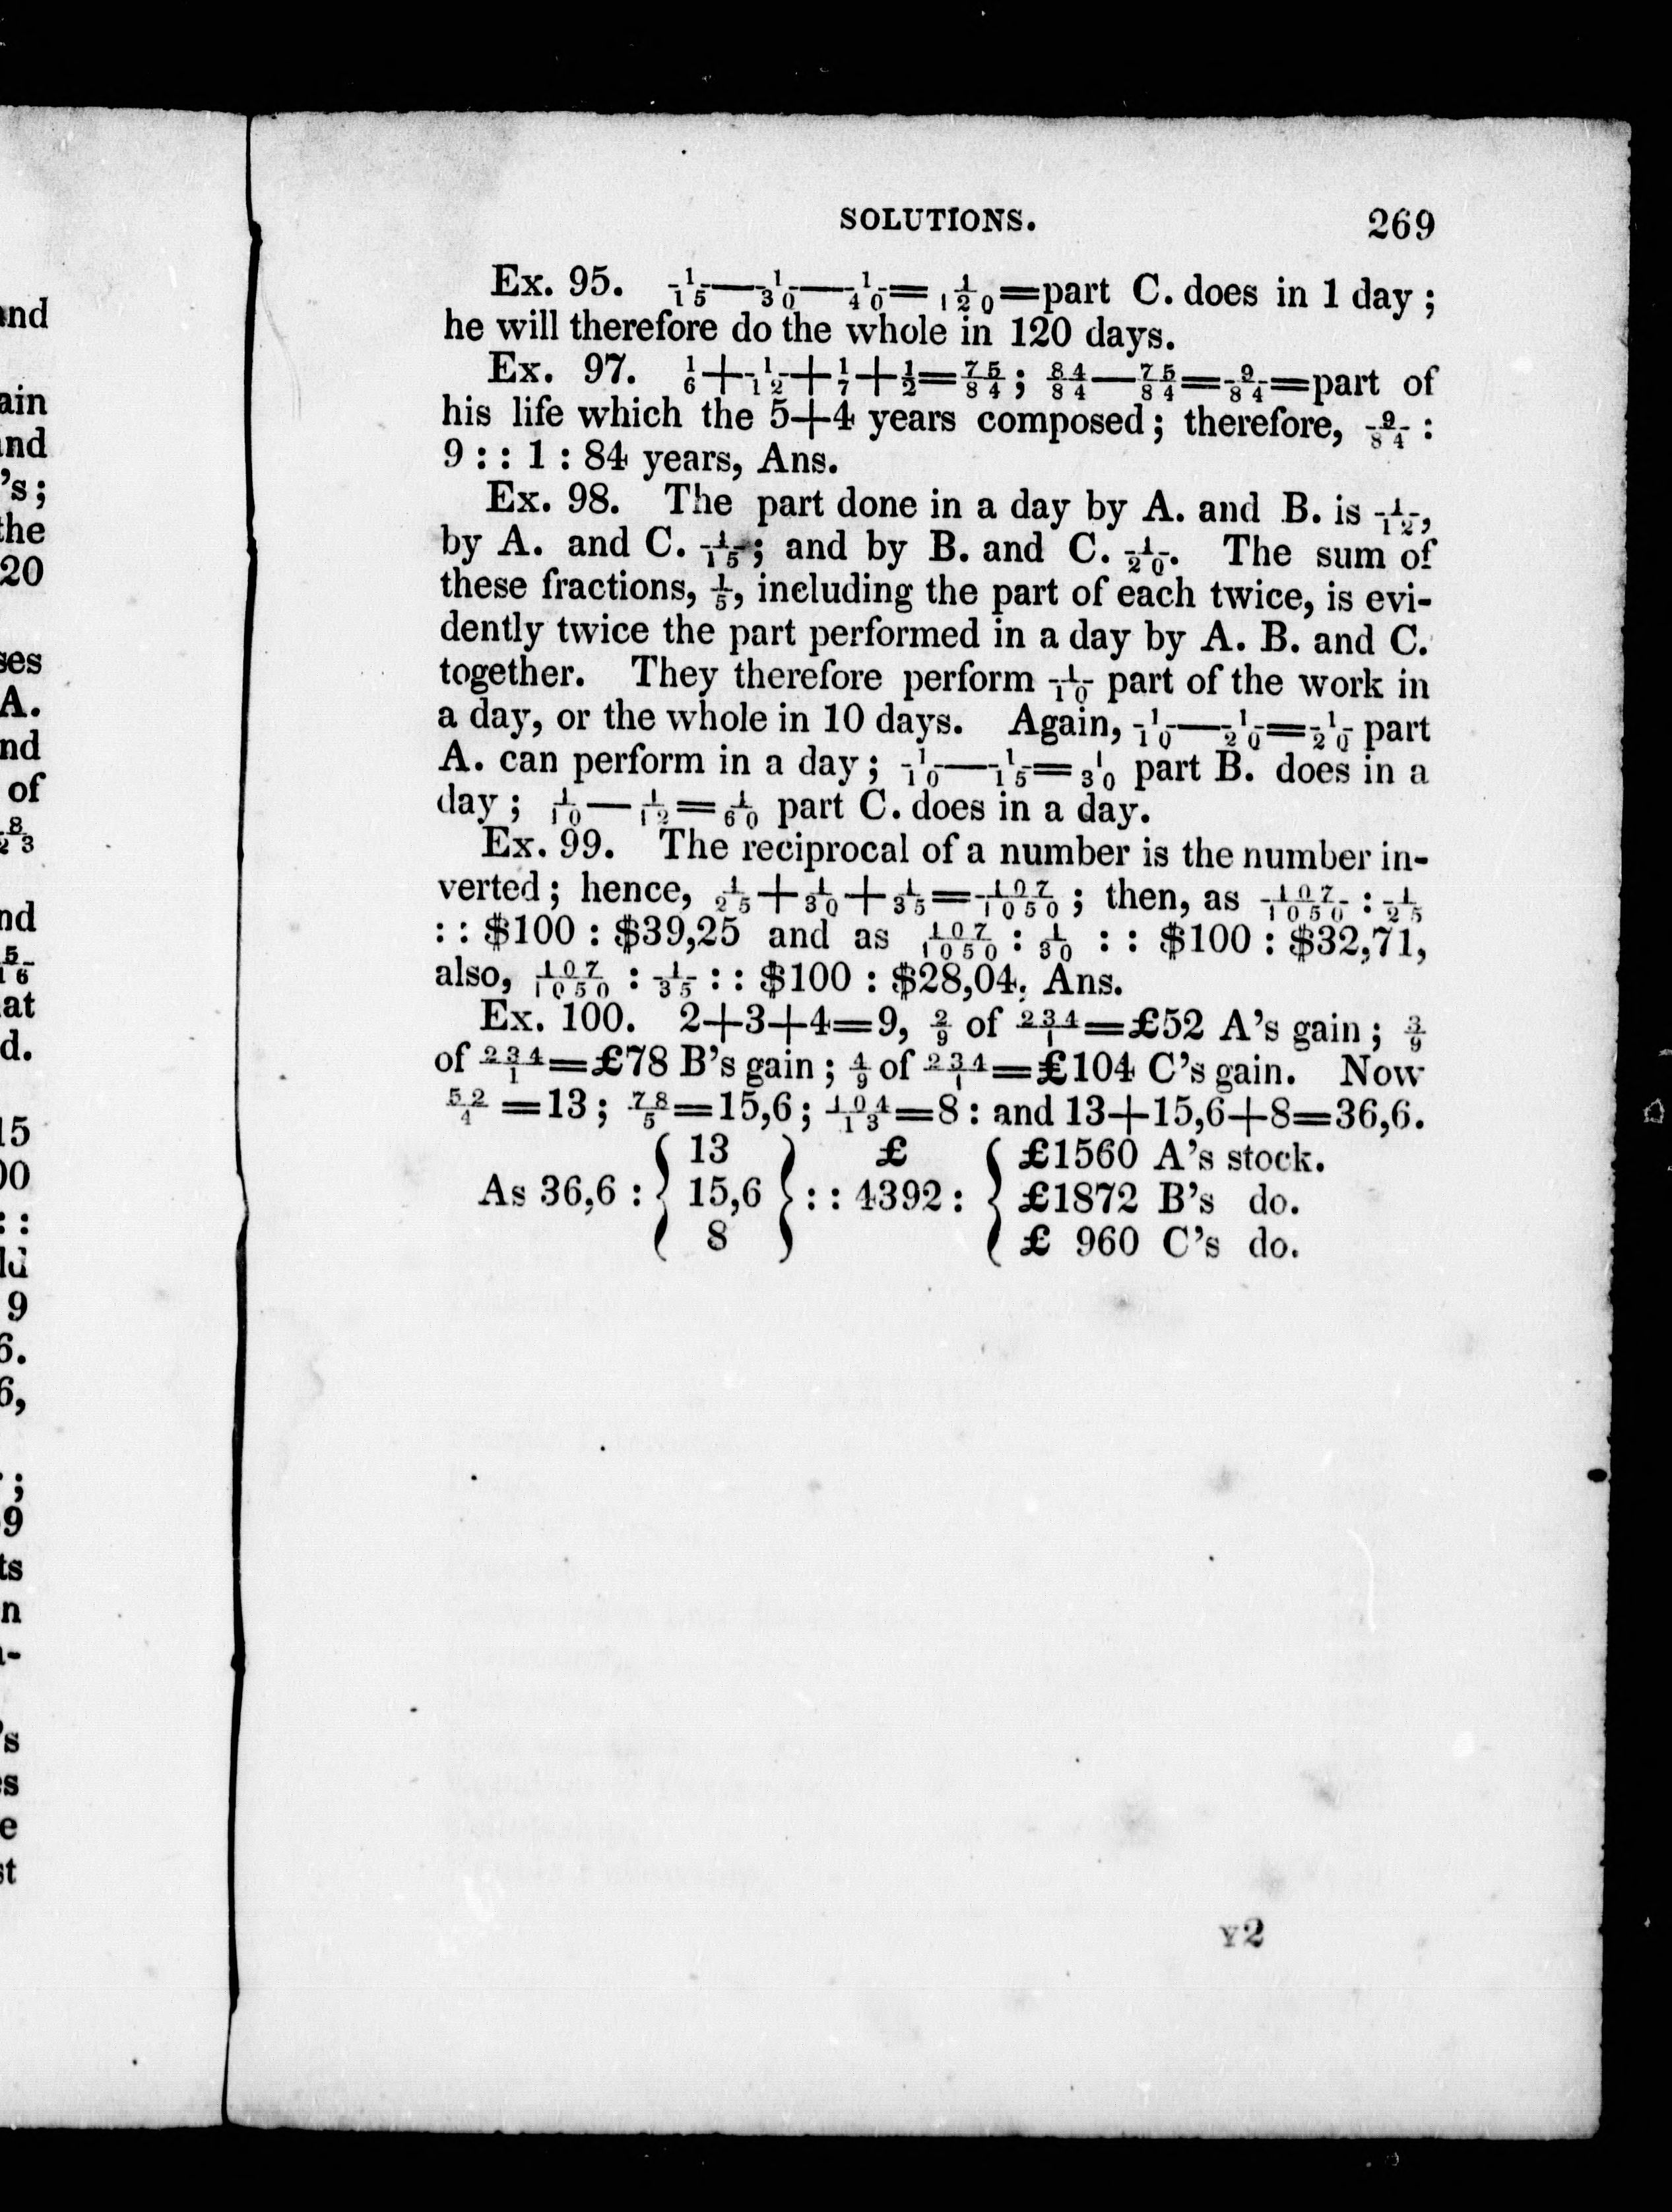 nd
ain
nd
's;
the
20
ses
A.
nd
of
nd
at
d.
15
00
: :
ld
9
6.
6,
;
9
ts
n
-
's
es
e
st
SOLUTIONS. 269
Ex. 95. 1/15—1/30—1/40=1/120=part C. does in 1 day ;
he will therefore do the whole in 120 days.
Ex. 97. 1/6+1/12+1/7+1/2=75/84; 84/84—75/84=9/84=part of
his life which the 5+4 years composed; therefore, 9/84 :
9 : : 1 : 84 years, Ans.
Ex. 98. The part done in a day by A. and B. is 1/12,
by A. and C. 1/15; and by B. and C. 1/20. The sum of
these fractions, 1/5, including the part of each twice, is evi-
dently twice the part performed in a day by A. B. and C.
together. They therefore perform 1/10 part of the work in
a day, or the whole in 10 days. Again, 1/10—1/20=1/20 part
A. can perform in a day; 1/10—1/15=1/30 part B. does in a
day; 1/10—1/12=1/60 part C. does in a day.
Ex. 99. The reciprocal of a number is the number in-
verted; hence, 1/25+1/30+1/35=107/1050; then, as 107/1050 : 1/25
: : $100 : $39,25 and as 107/1050 : 1/30 : : $100 : $32,71,
also, 107/1050 : 1/35 : : $100 : $28,04. Ans.
Ex. 100. 2+3+4=9, 2/9 of 234/1=£52 A's gain; 3/9
of 234/1=£78 B's gain; 4/9 of 234/1=£104 C's gain. Now
52/4=13; 78/5=15,6; 104/13=8: and 13+15,6+8=36,6.
{ 13 } £ { £1560 A's stock.
As 36,6 : { 15,6 } : : 4392 : { £1872 B's do.
{ 8 } { £ 960 C's do.
Y2